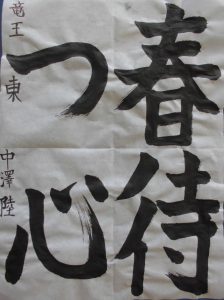 春待
つ心
竜王東
中澤陸